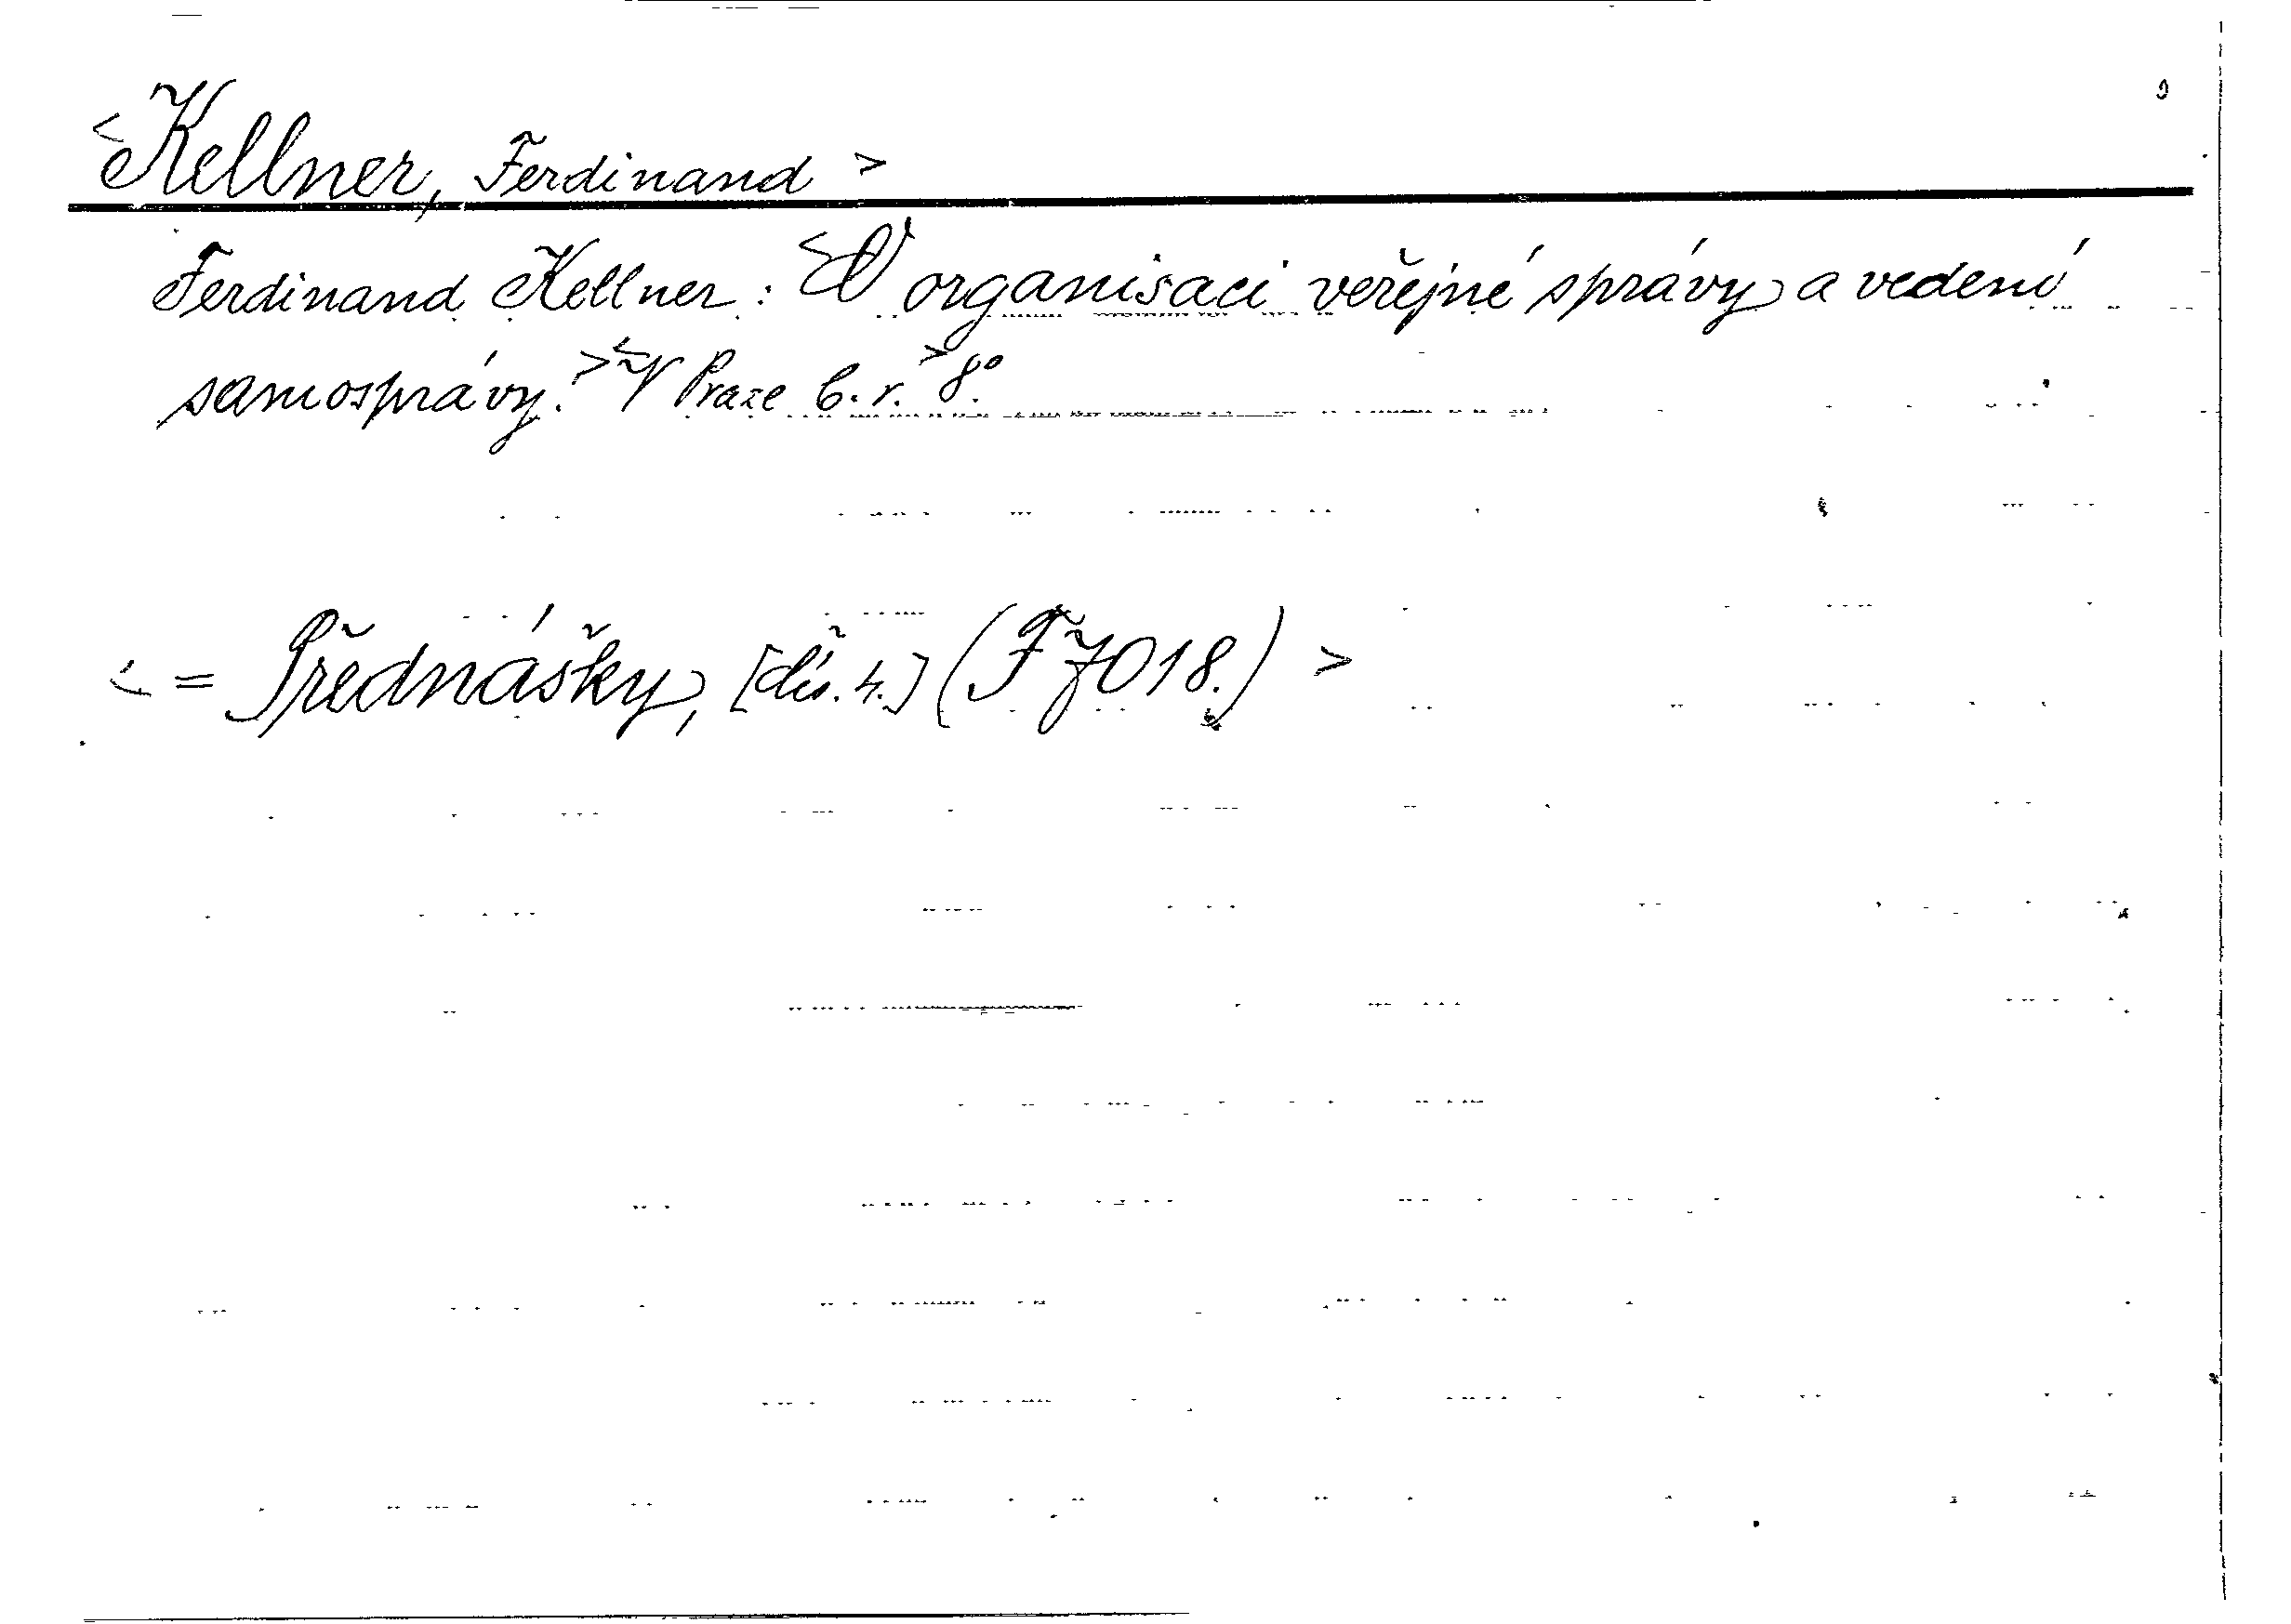 <Kellner, Ferdinand>
Ferdinand Kellner: <O organisaci veřejné správy a vedení
samosprávy.> <V Praze b. r.> 8°.
<= Přednášky, [čís. 4.] (F 7018.)>